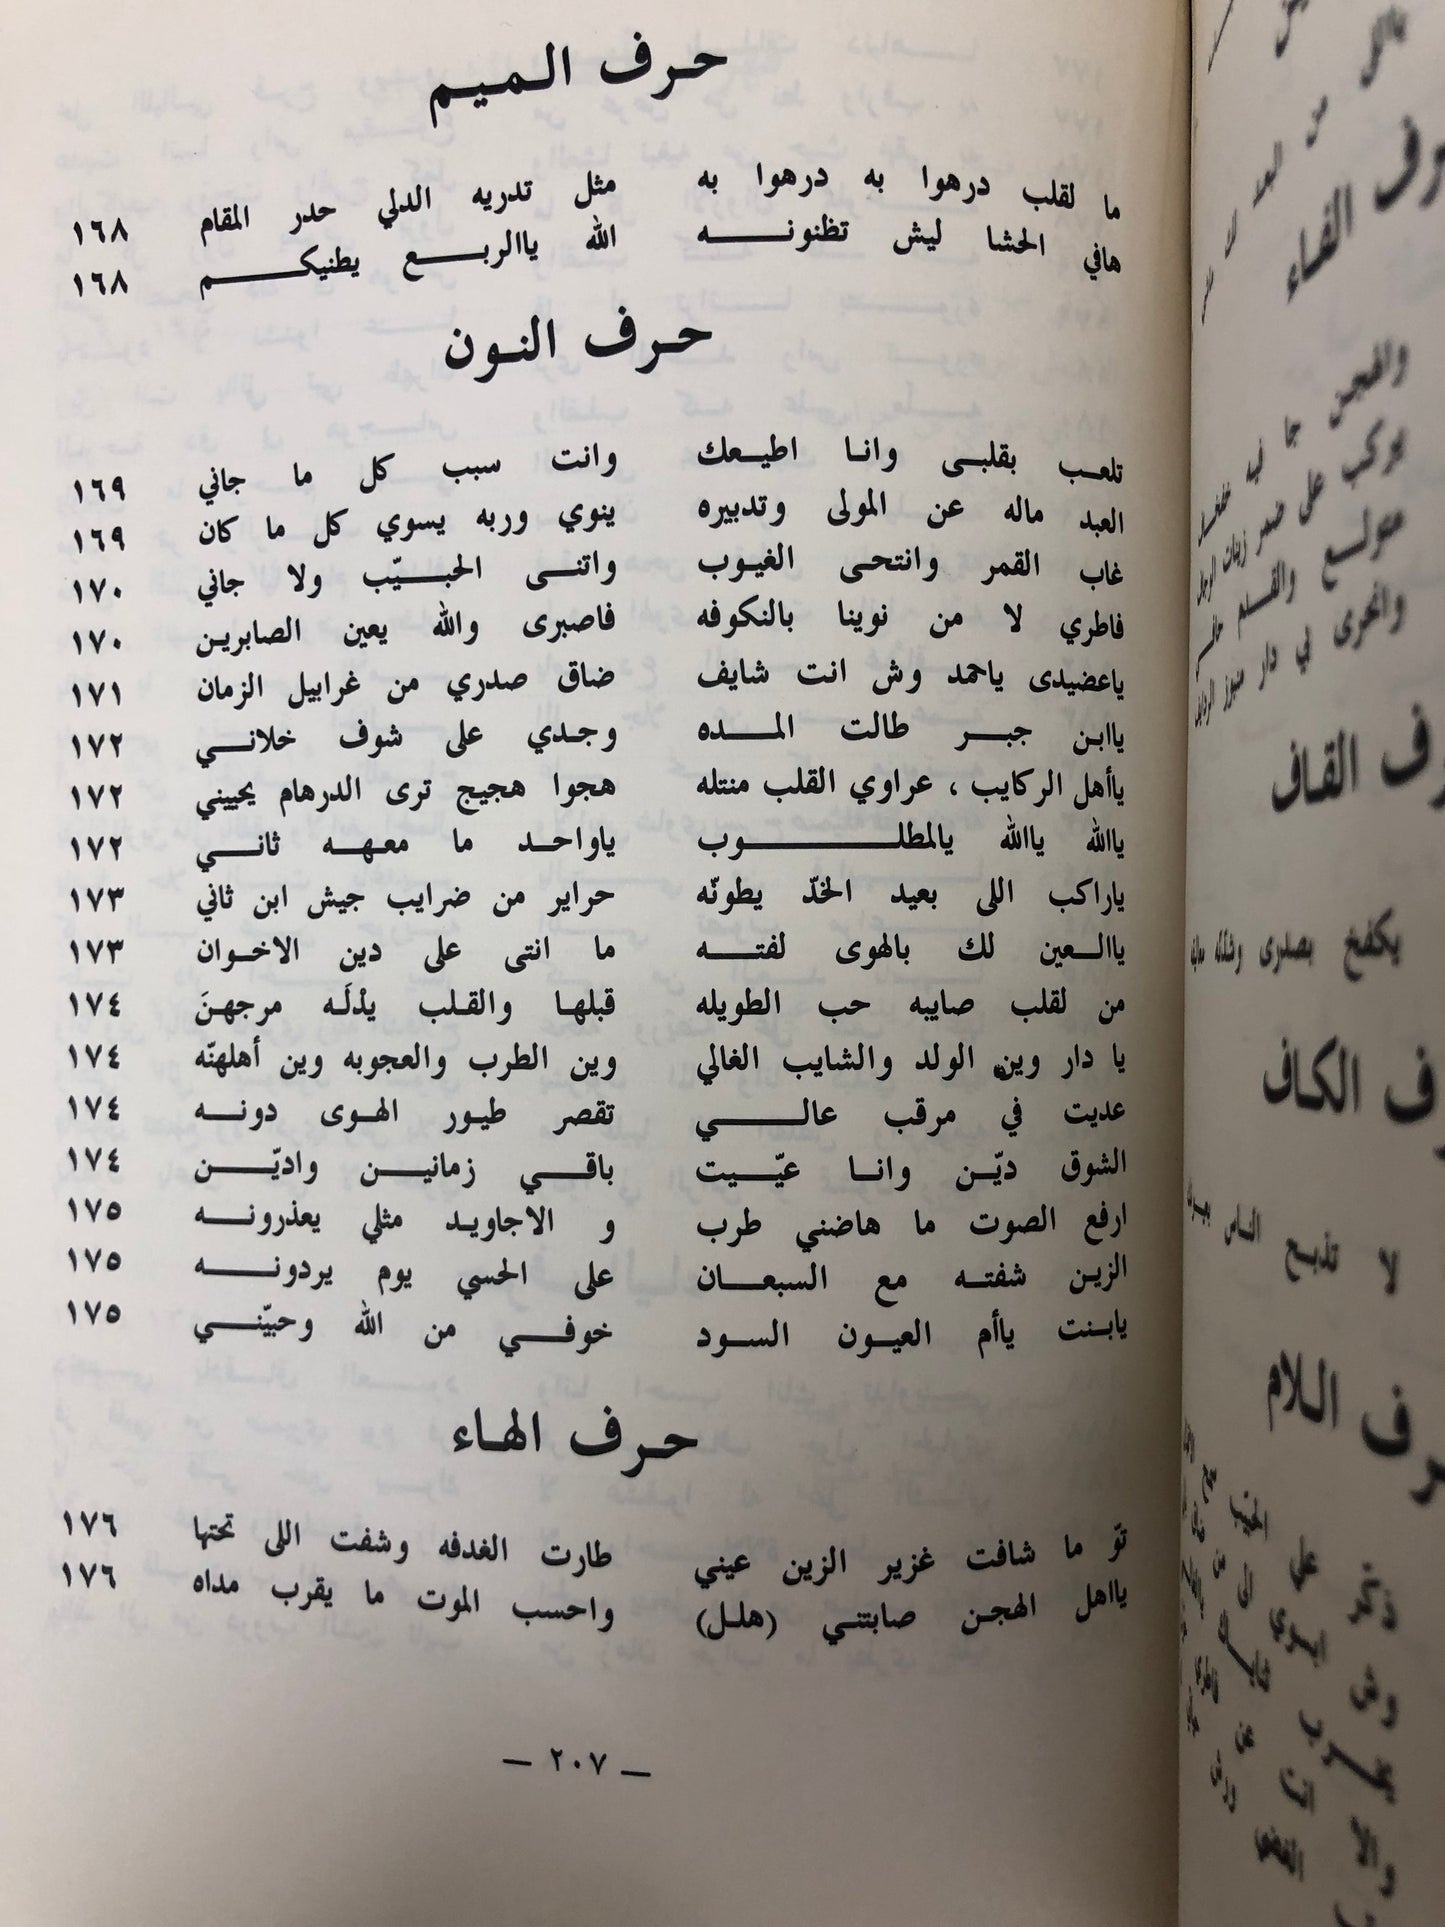 حرف الميم
ما لقلب درهوا به درهوا به مثل تدريه الدلي حدر المقام ١٦٨
هافي الحشا ليش تظنونه الله ياالربع يطنيكم ١٦٨
حرف النون
تلعب بقلبى وانا اطيعك وانت سبب كل ما جاني ١٦٩
العبد ماله عن المولى وتدبيره ينوي وربه يسوي كل ما كان ١٦٩
غاب القمر وانتحى الغيوب واتنى الحبيّب ولا جاني ١٧٠
فاطري لا من نوينا بالنكوفه فاصبرى والله يعين الصابرين ١٧٠
ياعضيدى ياحمد وش انت شايف ضاق صدري من غرابيل الزمان ١٧١
ياابن جبر طالت المده وجدي على شوف خلاني ١٧٢
ياأهل الركايب ، عراوي القلب منتله هجوا هجيج ترى الدرهام يحييني ١٧٢
ياالله ياالله يالمطلوب ياواحد ما معه ثاني ١٧٢
ياراكب اللى بعيد الخدّ يطونّه حراير من ضرايب جيش ابن ثاني ١٧٣
ياالعين لك بالهوى لفته ما انتى على دين الاخوان ١٧٣
من لقلب صايبه حب الطويله قبلها والقلب يذْلَه مرجهنَ ١٧٤
يا دار وين الولد والشايب الغالي وين الطرب والعجوبه وين أهلهنّه ١٧٤
عديت في مرقب عالي تقصر طيور الهوى دونه ١٧٤
الشوق ديّن وانا عيّيت باقي زمانين واديّن ١٧٤
ارفع الصوت ما هاضني طرب و الاجاويد مثلي يعذرونه ١٧٥
الزين شفته مع السبعان على الحسي يوم يردونه ١٧٥
يابنت ياأم العيون السود خوفي من الله وحبيّني ١٧٥
حرف الهاء
توّ ما شافت غزير الزين عيني طارت الغدفه وشفت اللى تحتها ١٧٦
يااهل الهجن صابتني (هلل) واحسب الموت ما يقرب مداه ١٧٦
ـ ٢٠٧ ـ
حرف الفاء
والهجن جا في
يركب على صدر زينات
والقلم
واخرى في دار
حرف القاف
يكفخ بصدرى
حرف الكاف
لا تذبح الناس
حرف اللام